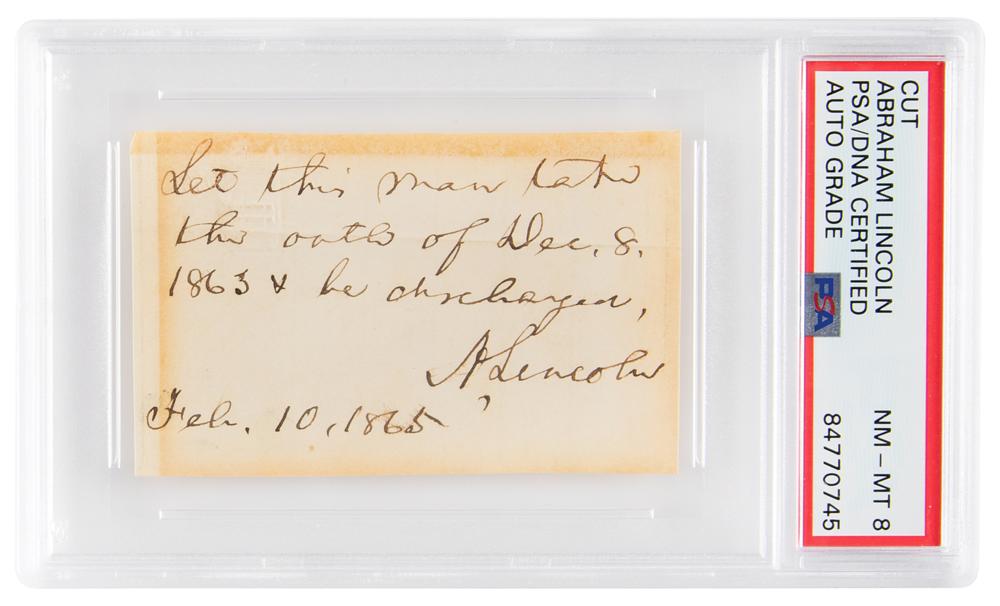 Let this man take
the oath of Dec. 8.
1863 & be discharged,
A Lincoln
Feb. 10, 1865
CUT
ABRAHAM LINCOLN
PSA/DNA CERTIFIED
AUTO GRADE
NM – MT 8
84770745
PSA